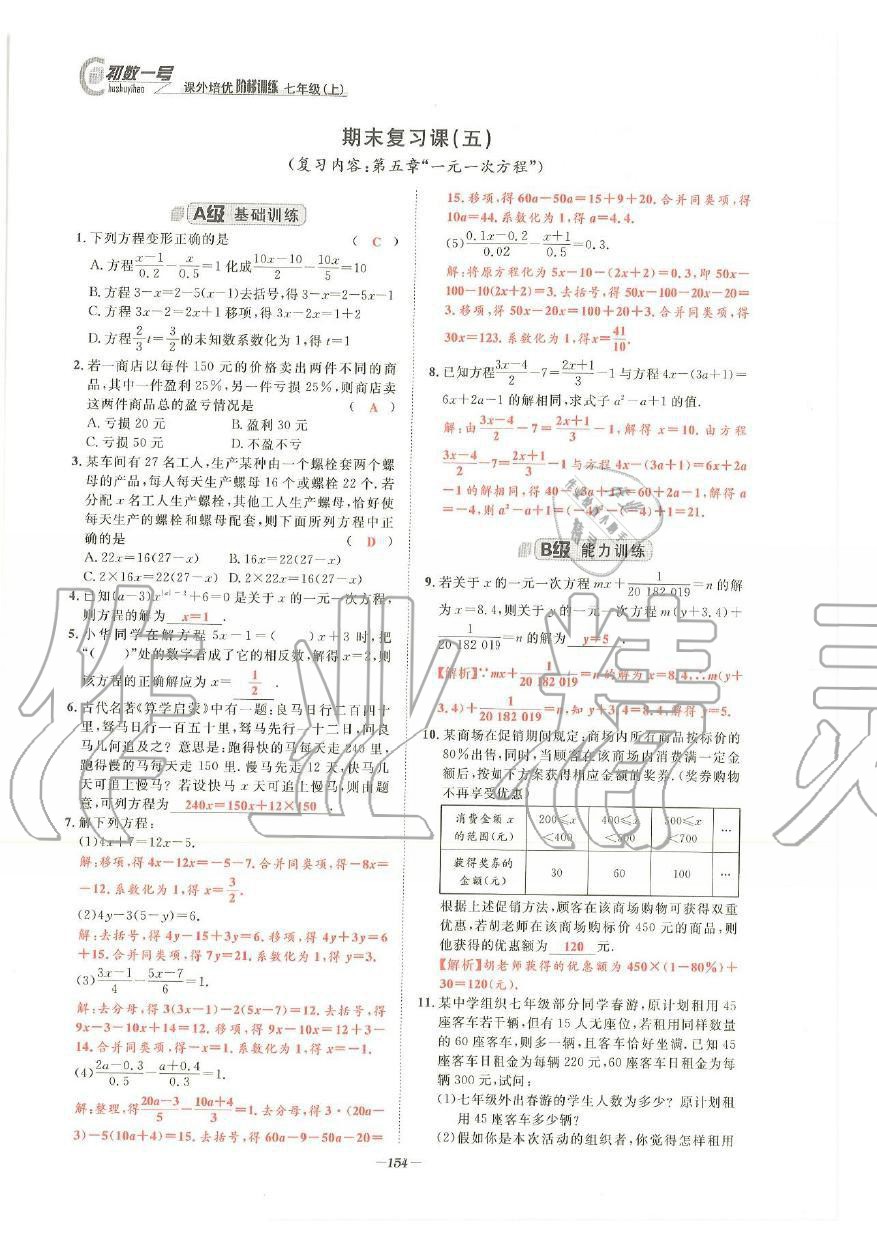 初数一号
chushuyihao
课外培优 阶梯训练 七年级(上)
期末复习课(五)
(复习内容:第五章“一元一次方程”)
A级 基础训练
1. 下列方程变形正确的是 ( C )
A. 方程\frac{x-1}{0.2}-\frac{x}{0.5}=1化成\frac{10x-10}{2}-\frac{10x}{5}=10
B. 方程3-x=2-5(x-1)去括号,得3-x=2-5x-1
C. 方程3x-2=2x+1移项,得3x-2x=1+2
D. 方程\frac{2}{3}t=\frac{3}{2}的未知数系数化为1,得t=1
2. 若一商店以每件150元的价格卖出两件不同的商
品,其中一件盈利25%,另一件亏损25%,则商店卖
这两件商品总的盈亏情况是 ( A )
A. 亏损20元 B. 盈利30元
C. 亏损50元 D. 不盈不亏
3. 某车间有27名工人,生产某种由一个螺栓套两个螺
母的产品,每人每天生产螺母16个或螺栓22个.若
分配x名工人生产螺栓,其他工人生产螺母,恰好使
每天生产的螺栓和螺母配套,则下面所列方程中正
确的是 ( D )
A. 22x=16(27-x) B. 16x=22(27-x)
C. 2×16x=22(27-x) D. 2×22x=16(27-x)
4. 已知(a-3)x^{|a|-2}+6=0是关于x的一元一次方程,
则方程的解为 x=1 .
5. 小华同学在解方程5x-1=( )x+3时,把
“( )”处的数字看成了它的相反数,解得x=2,则
该方程的正确解应为x= \frac{1}{2} .
6. 古代名著《算学启蒙》中有一题:良马日行二百四十
里,驽马日行一百五十里,驽马先行一十二日,问良
马几何追及之?意思是:跑得快的马每天走240里,
跑得慢的马每天走150里.慢马先走12天,快马几
天可追上慢马?若设快马x天可追上慢马,则由题
意,可列方程为 240x=150x+12×150 .
7. 解下列方程:
(1)4x+7=12x-5.
解:移项,得4x-12x=-5-7.合并同类项,得-8x=
-12.系数化为1,得x=\frac{3}{2}.
(2)4y-3(5-y)=6.
解:去括号,得4y-15+3y=6.移项,得4y+3y=6
+15.合并同类项,得7y=21.系数化为1,得y=3.
(3)\frac{3x-1}{4}-\frac{5x-7}{6}=1.
解:去分母,得3(3x-1)-2(5x-7)=12.去括号,得
9x-3-10x+14=12.移项,得9x-10x=12+3-
14.合并同类项,得-x=1.系数化为1,得x=-1.
(4)\frac{2a-0.3}{0.5}-\frac{a+0.4}{0.3}=1.
解:整理,得\frac{20a-3}{5}-\frac{10a+4}{3}=1.去分母,得3·(20a-
3)-5(10a+4)=15.去括号,得60a-9-50a-20=
15.移项,得60a-50a=15+9+20.合并同类项,得
10a=44.系数化为1,得a=4.4.
(5)\frac{0.1x-0.2}{0.02}-\frac{x+1}{0.5}=0.3.
解:将原方程化为5x-10-(2x+2)=0.3,即50x-
100-10(2x+2)=3.去括号,得50x-100-20x-20=
3.移项,得50x-20x=100+20+3.合并同类项,得
30x=123.系数化为1,得x=\frac{41}{10}.
8. 已知方程\frac{3x-4}{2}-7=\frac{2x+1}{3}-1与方程4x-(3a+1)=
6x+2a-1的解相同,求式子a²-a+1的值.
解:由\frac{3x-4}{2}-7=\frac{2x+1}{3}-1,解得x=10.由方程
\frac{3x-4}{2}-7=\frac{2x+1}{3}-1与方程4x-(3a+1)=6x+2a
-1的解相同,得40-(3a+1)=60+2a-1,解得a
=-4,则a²-a+1=(-4)²-(-4)+1=21.
B级 能力训练
9. 若关于x的一元一次方程mx+\frac{1}{20 182 019}=n的解
为x=8.4,则关于y的一元一次方程m(y+3.4)+
\frac{1}{20 182 019}=n的解为 y=5 .
【解析】∵mx+\frac{1}{20 182 019}=n的解为x=8.4,∴m(y+
3.4)+\frac{1}{20 182 019}=n,知y+3.4=8.4,解得y=5.
10. 某商场在促销期间规定:商场内所有商品按标价的
80%出售,同时,当顾客在该商场内消费满一定金
额后,按如下方案获得相应金额的奖券.(奖券购物
不再享受优惠)
消费金额x的范围(元) 200≤x<400 400≤x<500 500≤x<700 …
获得奖券的金额(元) 30 60 100 …
根据上述促销方法,顾客在该商场购物可获得双重
优惠,若胡老师在该商场购标价450元的商品,则
他获得的优惠额为 120 元.
【解析】胡老师获得的优惠额为450×(1-80%)+
30=120(元).
11. 某中学组织七年级部分同学春游,原计划租用45
座客车若干辆,但有15人无座位,若租用同样数量
的60座客车,则多一辆,且客车恰好坐满.已知45
座客车日租金为每辆220元,60座客车日租金为每
辆300元,试问:
(1)七年级外出春游的学生人数为多少?原计划租
用45座客车多少辆?
(2)假如你是本次活动的组织者,你觉得怎样租用
—154—
作业精灵